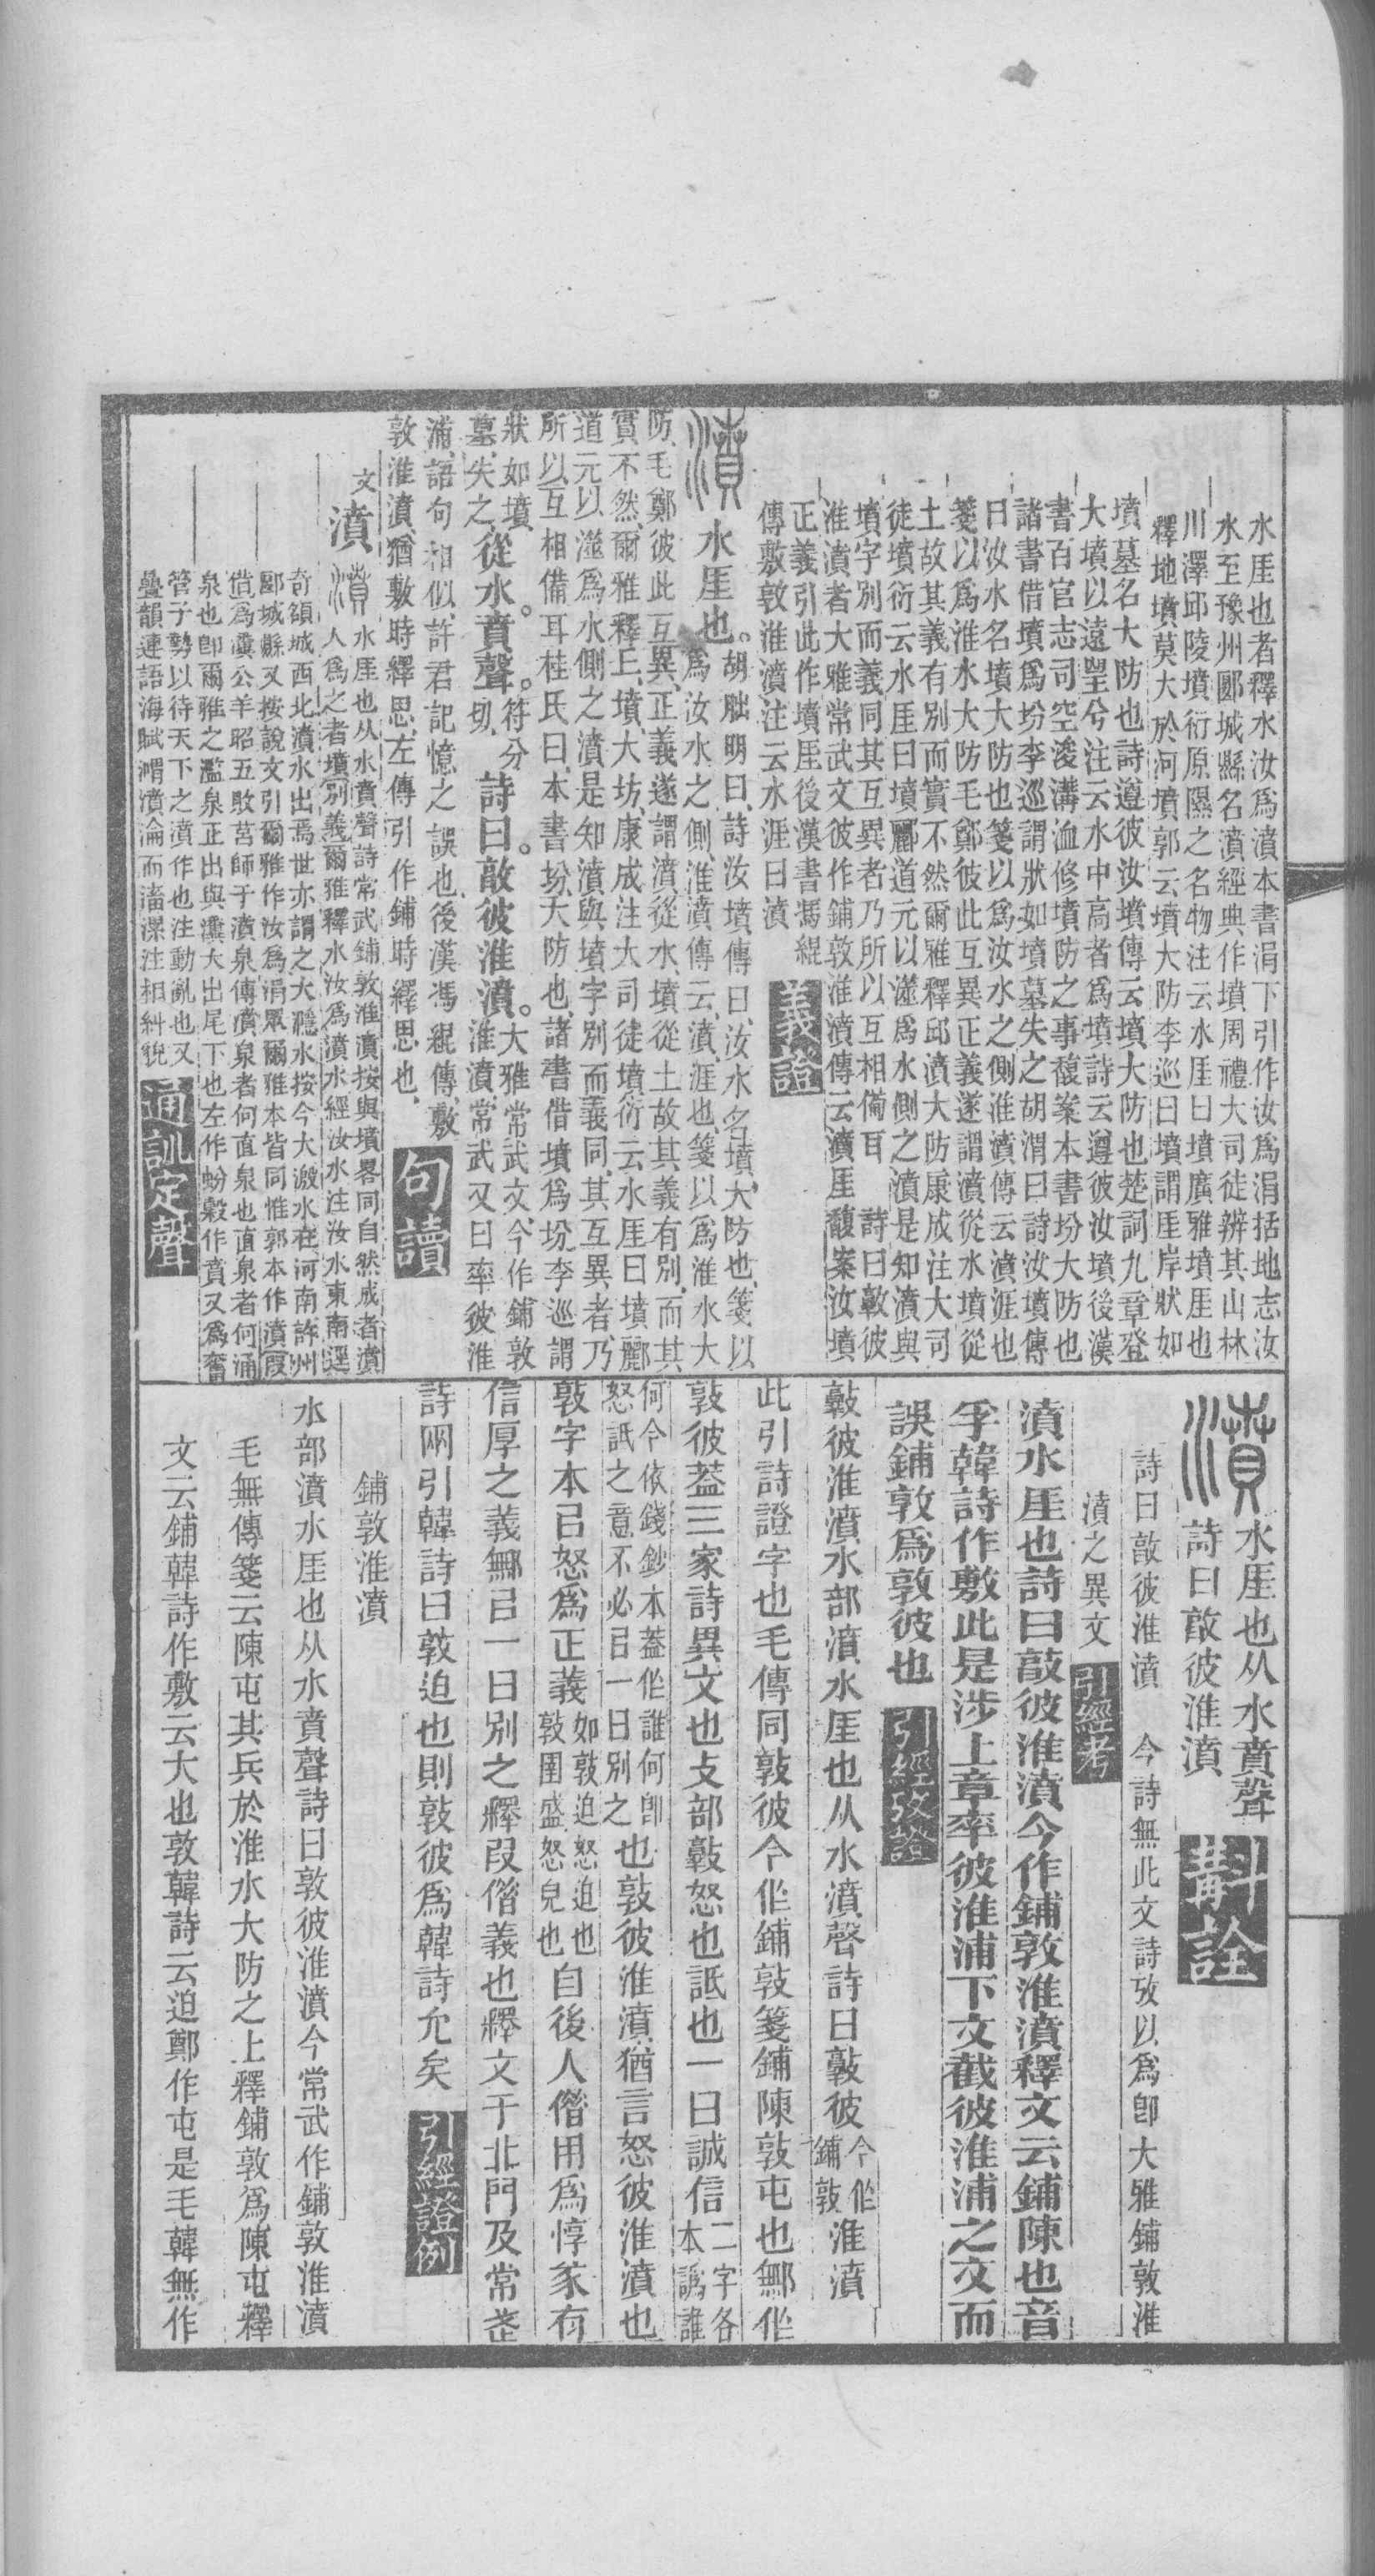 水厓也者釋水汝爲濆本書涓下引作汝爲涓括地志汝
水至豫州郾城縣名濆經典作墳周禮大司徒辨其山林
川澤邱陵墳衍原隰之名物注云水厓曰墳廣雅墳厓也
釋地墳莫大於河墳郭云墳大防李巡曰墳謂厓岸狀如
墳墓名大防也詩遵彼汝墳傳云墳大防也楚詞九章登
大墳以遠望兮注云水中高者爲墳詩云遵彼汝墳後漢
書百官志司空浚溝洫修墳防之事馥案本書坋大防也
諸書借墳爲坋李巡謂狀如墳墓失之胡渭曰詩汝墳傳
曰汝水名墳大防也箋以爲汝水之側淮濆傳云濆涯也
箋以爲淮水大防毛鄭彼此互異正義遂謂濆從水墳從
土故其義有別而實不然爾雅釋邱濆大防康成注大司
徒墳衍云水厓曰墳酈道元以澨爲水側之濆是知濆與
墳字別而義同其互異者乃所以互相備耳 詩曰敦彼
淮濆者大雅常武文彼作鋪敦淮濆傳云濆厓馥案汝墳
正義引此作墳厓後漢書馮緄
傳敷敦淮濆注云水涯曰濆 義證
濆 水厓也。胡朏明曰、詩汝墳傳曰、汝水名、墳、大防也、箋以
爲汝水之側、淮濆傳云、濆、涯也、箋以爲淮水大
防、毛鄭彼此互異、正義遂謂濆、從水、墳從土、故其義有別、而其
實不然、爾雅釋丘、墳、大坊、康成注大司徒墳衍云、水厓曰墳、酈
道元以澨爲水側之濆、是知濆與墳字別而義同、其互異者、乃
所以互相備耳、桂氏曰、本書坋、大防也、諸書借墳爲坋、李巡謂
狀如墳
墓、失之、從水。賁聲。符分切、詩曰。敦彼淮濆。大雅常武文、今作鋪敦
淮濆、常武又曰率彼淮
浦、語句相似、許君記憶之誤也、後漢馮緄傳、敷
敦淮濆、猶敷時繹思、左傳引作鋪時繹思也、 句讀
文
濆 濆 水厓也从水賁聲詩常武鋪敦淮濆按與墳畧同自然成者濆
人爲之者墳別義爾雅釋水汝爲濆水經汝水注汝水東南逕
奇頟城西北濆水出焉世亦謂之大㶏水按今大溵水在河南許州
郾城縣又按說文引爾雅作汝爲涓眾爾雅本皆同惟郭本作濆叚
借爲濆公羊昭五敗莒師于濆泉傳濆泉者何直泉也直泉者何涌
泉也卽爾雅之濫泉正出與瀵大出尾下也左作蚡穀作賁又爲奮
管子勢以待天下之濆作也注動亂也又
疊韻連語海賦㵒濆淪而滀漯注相糾貌 通訓定聲
濆 水厓也从水賁聲
詩曰敦彼淮濆 斠詮
詩曰敦彼淮濆 今詩無此文詩攷以爲卽大雅鋪敦淮
濆之異文 引經考
濆水厓也詩曰敦彼淮濆今作鋪敦淮濆釋文云鋪陳也音
孚韓詩作敷此是涉上章率彼淮浦下文截彼淮浦之文而
誤鋪敦爲敦彼也 引經攷證
敦彼淮濆水部濆水厓也从水濆聲詩曰敦彼今作鋪敦淮濆
此引詩證字也毛傳同敦彼今作鋪敦箋鋪陳敦屯也鄦作
敦彼葢三家詩異文也攴部敦怒也詆也一曰誠信二字各本譌誰
何今依錢鈔本葢作誰何卽
怒詆之意不必㠯一曰別之也敦彼淮濆猶言怒彼淮濆也
敦字本㠯怒爲正義如敦迫怒迫也敦圉盛怒皃也自後人借用爲惇家有
信厚之義鄦㠯一曰別之釋叚借義也釋文于北門及常武
詩网引韓詩曰敦迫也則敦彼爲韓詩允矣 引經證例
鋪敦淮濆
水部濆水厓也从水賁聲詩曰敦彼淮濆今常武作鋪敦淮濆
毛無傳箋云陳屯其兵於淮水大防之上釋鋪敦爲陳屯釋
文云鋪韓詩作敷云大也敦韓詩云迫鄭作屯是毛韓無作